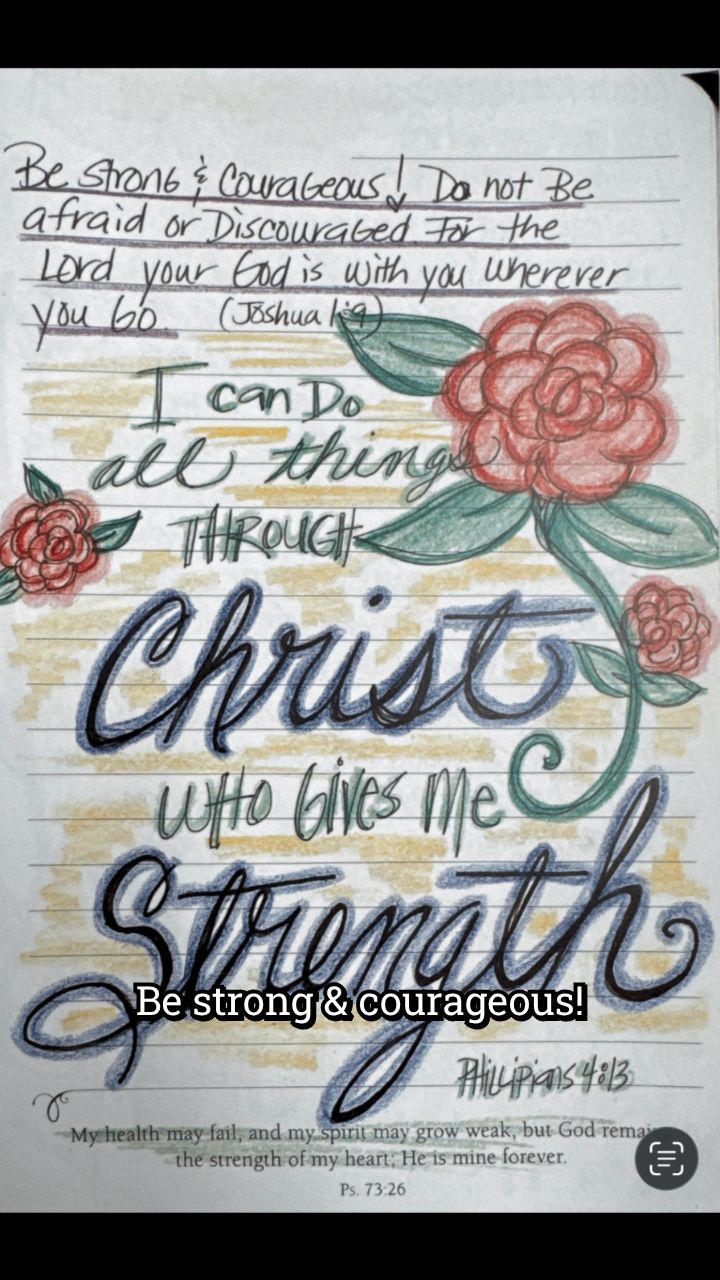 Be Strong & Courageous! Do not Be
afraid or Discouraged For the
Lord your God is with you wherever
you Go. (Joshua 1:9)
I can Do
all things
THROUGH
Christ
WHO Gives Me
Strength
Be strong & courageous!
PHillipians 4:13
My health may fail, and my spirit may grow weak, but God remai
the strength of my heart; He is mine forever.
Ps. 73:26